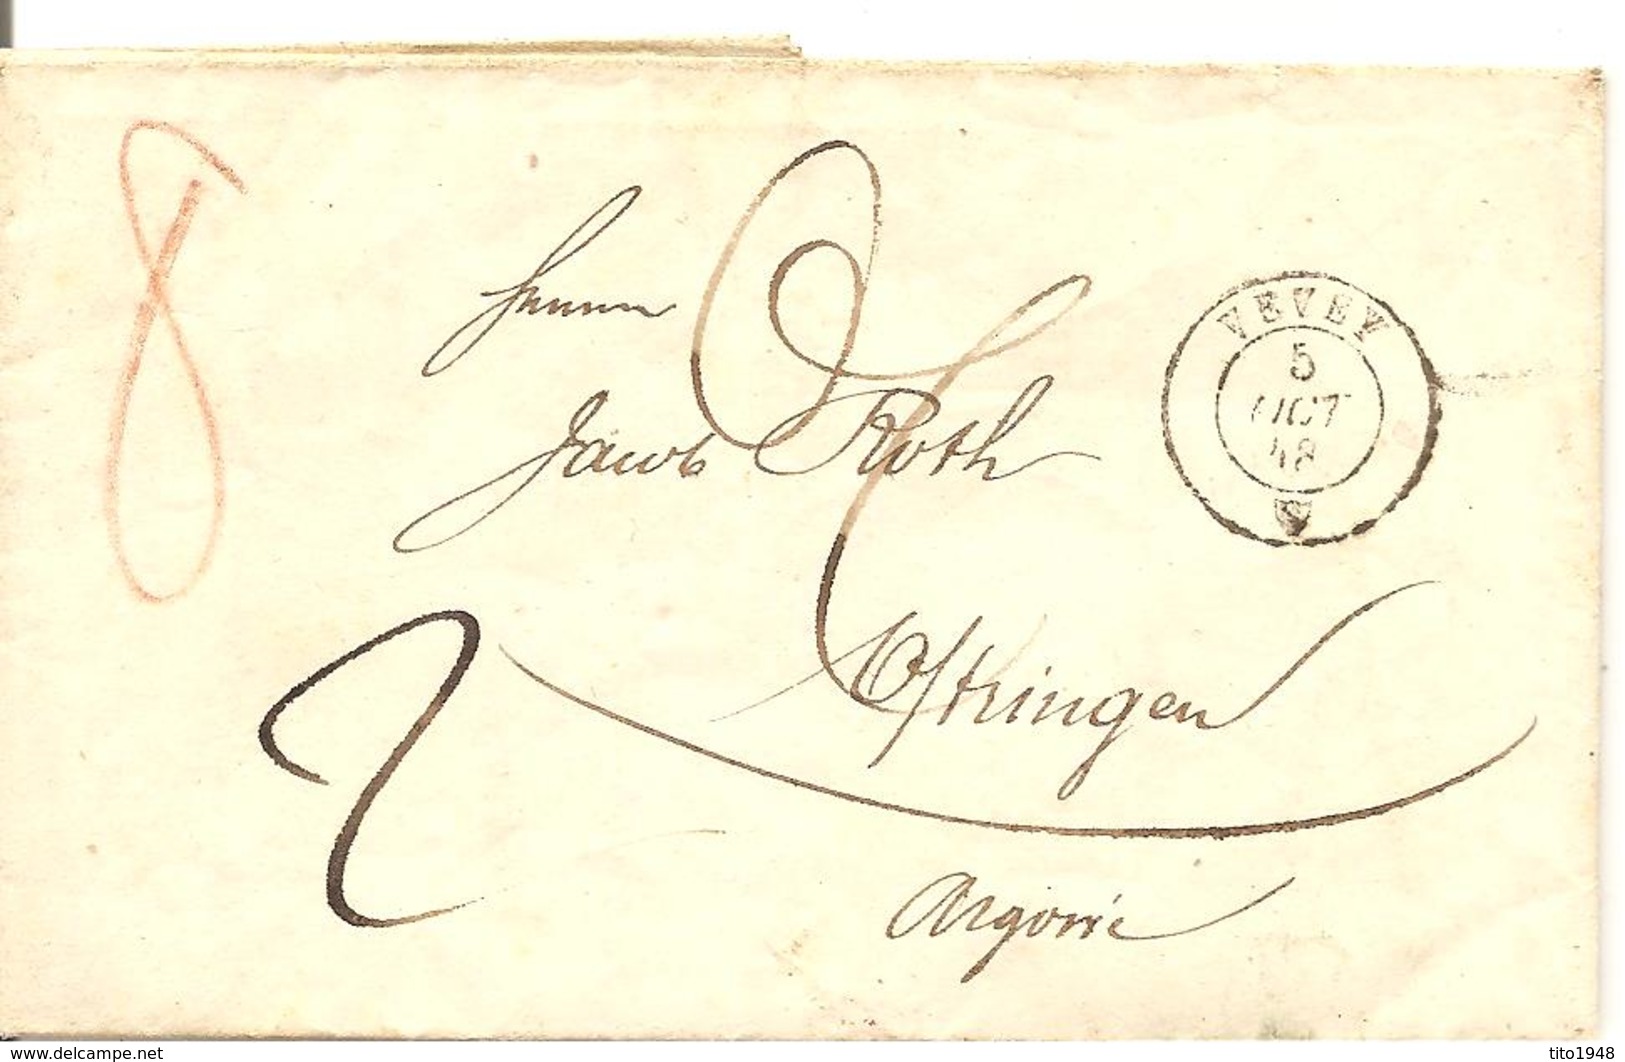 8
Herrn
Jacob Roth
VEVEY
5
AOUT
48
Oftringen
2
Argovie
www.delcampe.net
tito1948